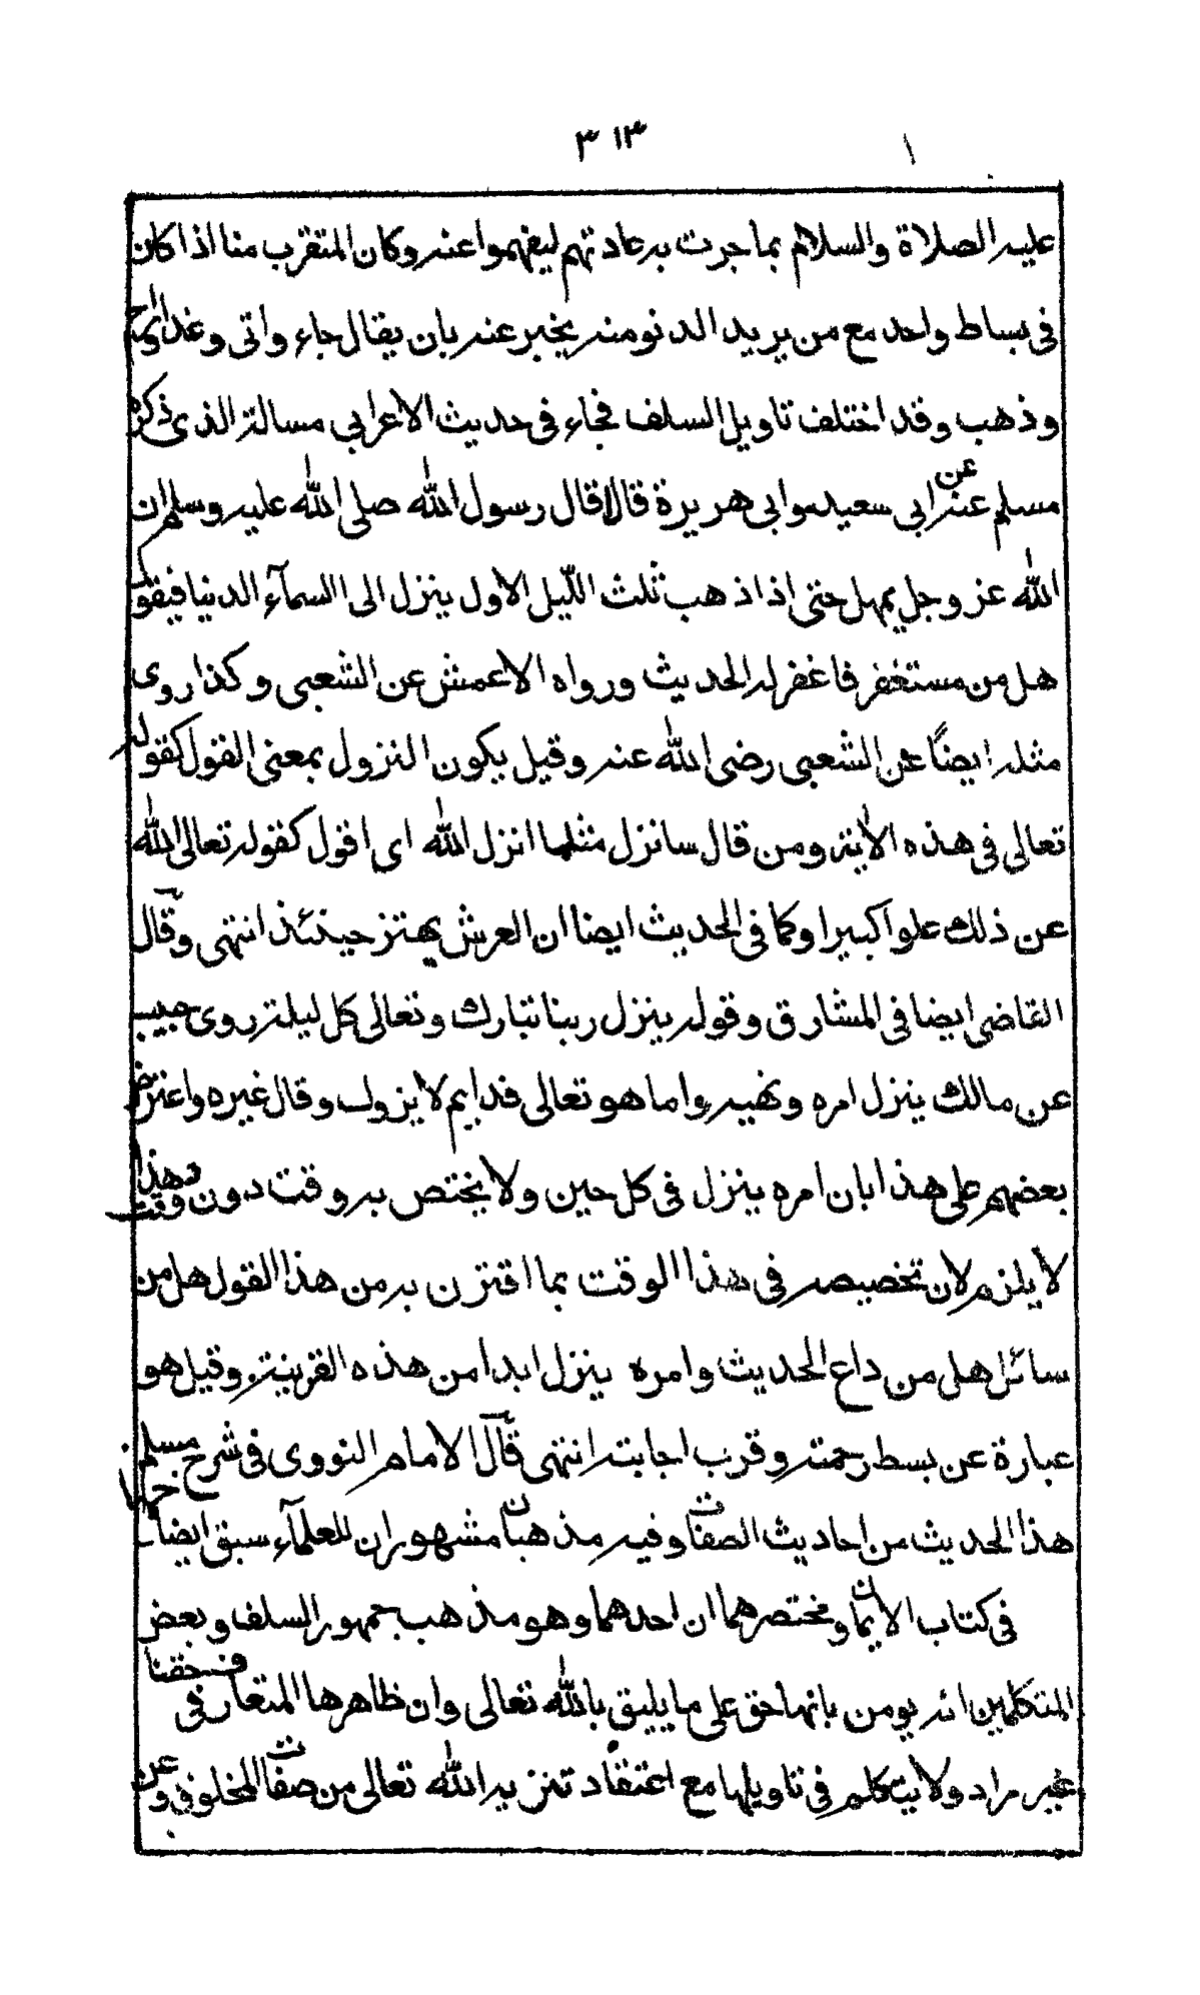 ٣١٣
١
عليه الصلاة والسلام بما جرت به عادتهم ليفهموا عنه وكان المتقرب منا اذا كان
فى بساط واحد مع من يريد الدنو منه يخبر عنه بان يقال جاء واتى وغدا وراح
وذهب وقد اختلف تاويل السلف فجاء فى حديث الاعرابي مسالة الذى ذكره
مسلم عن ابى سعيد وابى هريرة قالا قال رسول الله صلى الله عليه وسلم ان
الله عز وجل يمهل حتى اذا ذهب ثلث الليل الاول ينزل الى السمآء الدنيا فيقول
هل من مستغفر فاغفر له الحديث ورواه الاعمش عن الشعبى وكذا روى
مثله ايضاً عن الشعبى رضى الله عنه وقيل يكون النزول بمعنى القول كقوله
تعالى فى هذه الاية ومن قال سانزل مثلما انزل الله اى اقول كقوله تعالى الله
عن ذلك علوا كبيرا وكما فى الحديث ايضا ان العرش يهتز حينئذ انتهى وقال
القاضى ايضا فى المشارق وقوله ينزل ربنا تبارك وتعالى كل ليلة روى حبيب
عن مالك ينزل امره ونهيه واما هو تعالى فدايم لا يزول وقال غيره واعترض
بعضهم على هذا بان امره ينزل فى كل حين ولا يختص به وقت دون وقت وهذا
لا يلزم لان تخصيصه فى هذا الوقت بما اقترن به من هذا القول هل من
سائل هل من داع الحديث وامره ينزل ابدا من هذه القرينة وقيل هو
عبارة عن بسط رحمته وقرب اجابته انتهى قال الامام النووى فى شرح مسلم
هذا الحديث من احاديث الصفات وفيه مذهبان مشهوران للعلمآء سبق ايضاحها
فى كتاب الايمان ومختصرهما ان احدهما وهو مذهب جمهور السلف وبعض
المتكلمين انه يومن بانها حق على ما يليق بالله تعالى وان ظاهرها المتعارف فى حقنا
غير مراد ولا يتكلم فى تاويلها مع اعتقاد تنزيه الله تعالى من صفات المخلوق وعن